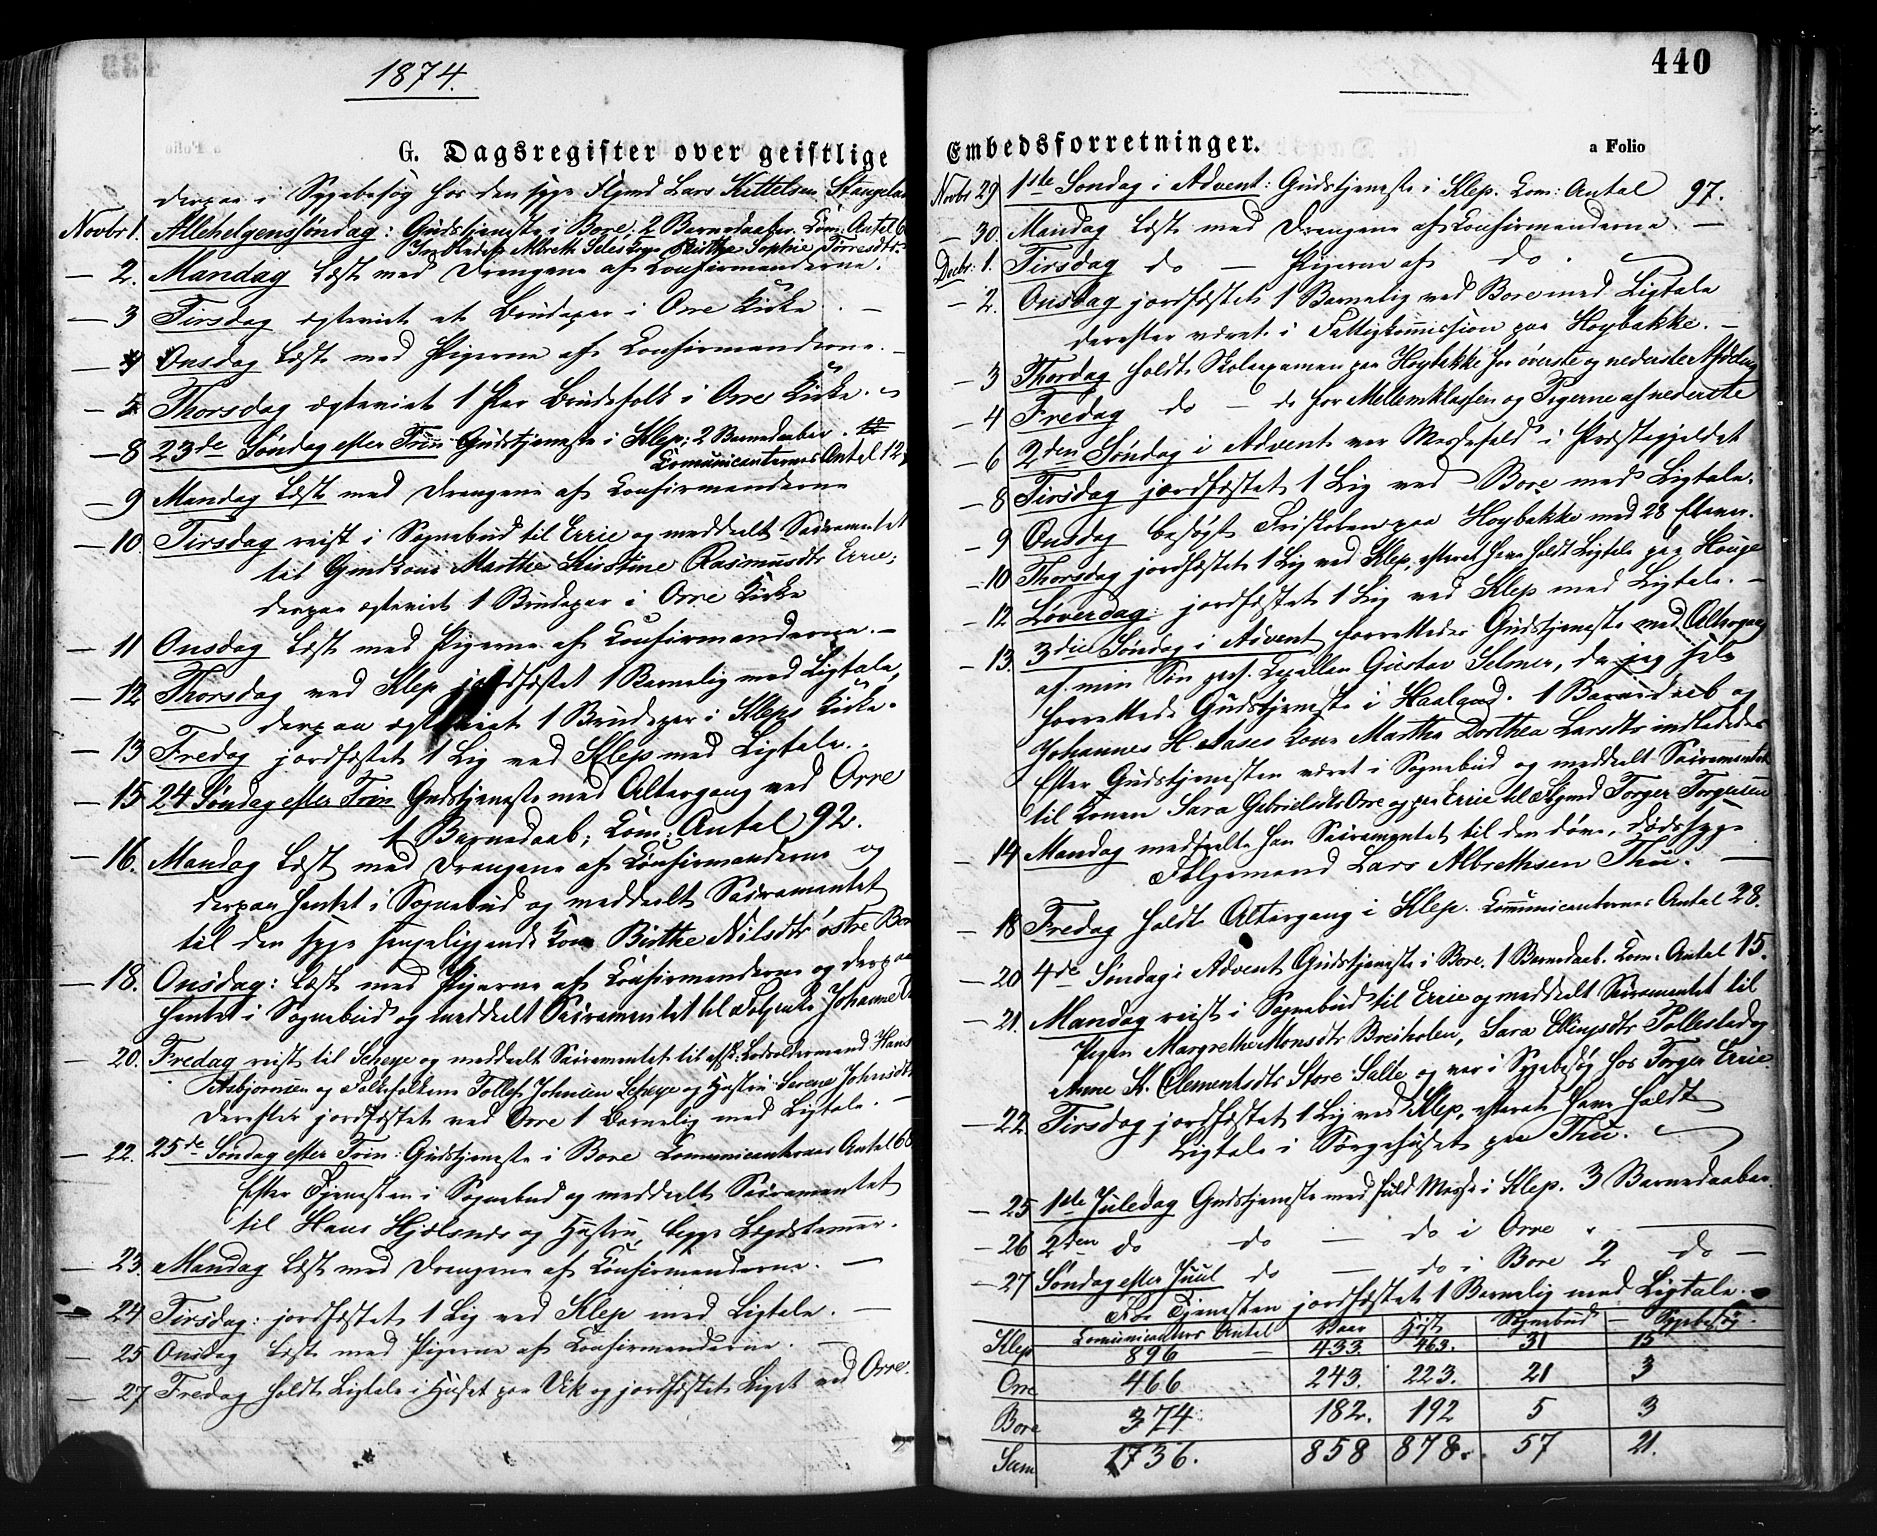 1874.
G. Dagsregister over geistlige
derpaa i Sygebesøg hos den syge Flgmd Lars Kittelsen Stangeland
Novbr 1. Allehelgensføndag: Gudstjeneste i Bore: 2 Barnedaaber. Com: Antal 6
Birthe Sophie
— 2. Mandag læst med Drengene af Confirmanderne.
— 3 Tirsdag ægteviet et Brudepar i Orre Kirke. —
— 4 Onsdag læst med Pigerne af Confirmanderne. —
— 5 Thorsdag ægteviet 1 Par Brudefolk i Orre Kirke. —
— 8 23de Søndag efter Trin Gudstjeneste i Klep: 2 Barnedaaber.
Communicanternes Antal 12
— 9 Mandag læst med Drengene af Confirmanderne
— 10. Tirsdag reist i Sognebud til Errie og meddeelt Sacramentet
til Gmdkone Marthe Kirstine Rasmusdtr Errie;
derpaa ægteviet 1 Brudepar i Orre Kirke
— 11 Onsdag læst med Pigerne af Confirmanderne. —
— 12 Thorsdag ved Klep jordfæstet 1 Barnelig med Ligtale,
derpaa ægteviet 1 Brudepar i Kleps Kirke.
— 13 Fredag jordfæstet 1 Lig ved Klep med Ligtale.
— 15 24 Søndag efter Trin Gudstjeneste med Altergang ved Orre
1 Barnedaab; Com: Antal 92.
— 16. Mandag læst med Drengene af Confirmanderne og
derpaa hentet i Sognebud og meddeelt Sacramentet
til den syge sengeliggende Kone Birthe Nilsdtr østre Bore
— 18. Onsdag: læst med Pigerne af Confirmanderne og derpaa
hentet i Sognebud og meddeelt Sacramentet til Johanne
— 20. Fredag reist til Scheye og meddeelt Sacramentet til Hans
Asbjørnsen og Folkefolkene Tollef Johnsen Scheye og Hustru Serene Johnsdtr
derefter jordfæstet ved Orre 1 Barnelig med Ligtale. —
— 22. 25de Søndag efter Trin: Gudstjeneste i Bore Communicanternes Antal 66
Efter Tjenesten i Sognebud og meddeelt Sacramentet
til Hans og Hustru, begge Lægdslemmer.
— 23. Mandag læst med Drengene af Confirmanderne. —
— 24 Tirsdag: jordfæstet 1 Lig ved Klep med Ligtale. —
— 25 Onsdag læst med Pigerne af Confirmanderne. —
— 27 Fredag holdt Ligtale i Huset paa Vik og jordfæstet Liget ved Orre.
440
Embedsforretninger.
a Folio
Novbr 29 1ste Søndag i Advent: Gudstjeneste i Klep. Com: Antal 97.
— 30. Mandag læst med Drengene af Confirmanderne. —
Decbr: 1. Tirsdag do — Pigerne af do.
— 2. Onsdag jordfæstet 1 Barnelig ved Bore med Ligtale
derefter været i Fattigkommission paa Høybakke. —
— 3 Thorsdag holdt Skoleexamen paa Høybakke for øverste og nederste Afdeling
— 4 Fredag do — do for Mellemklassen og Pigerne af nederste
— 6 2den Søndag i Advent var Messefald i Præstegjeldet
— 8 Tirsdag jordfæstet 1 Lig ved Bore med Ligtale.
— 9 Onsdag besøgt Friskolen paa Høybakke med 28 Elever.
— 10 Thorsdag jordfæstet 1 Lig ved Klep, efterat have holdt Ligtale paa Houge
— 12 Løverdag: jordfæstet 1 Lig ved Klep med Ligtale. —
— 13. 3die Søndag i Advent forrettedes Gudstjeneste med Altergang
af min Søn pers. Capellan Gustav Selmer, da jeg selv
forrettede Gudstjeneste i Haaland. 1 Barnedaab og
Johannes H. Aases Kone Martha Dorthea Larsdtr indlededes
Efter Gudstjenesten været i Sognebud og meddeelt Sacramentet
til Konen Sara Gabrielsdtr Orre og paa Errie til Flgmd Torger Torgersen
— 14 Mandag meddeelte han Sacramentet til den døve, dødssyge
Følgemand Lars Albrethsen Thu. —
— 18 Fredag holdt Altergang i Klep. Communicanternes Antal 28.
— 20 4de Søndag i Advent Gudstjeneste i Bore. 1 Barnedaab. Com: Antal 15.
— 21. Mandag reist i Sognebud til Errie og meddeelt Sacramentet til
Pigen Margrethe Monsdtr Breiholen, Sara Elingsdtr Pollestad og
Anne K. Clementsdtr Store Salte og var i Sygebesøg hos Torger Errie.
— 22. Tirsdag jordfæstet 1 Lig ved Klep, efterat have holdt
Ligtale i Sørgehuset paa Thu.
— 25 1ste Juledag Gudstjeneste med fuld Messe i Klep. 3 Barnedaaber
— 26 2den do do — do i Orre
— 27 Søndag efter Juul do — do i Bore 2 do —
Før Tjenesten jordfæstet 1 Barnelig med Ligtale.
Communicanters Antal Vaar Høst Sognebud — Sygebesøg.
Klep 896 — 433. 463. 31 15
Orre 466 243. 223. 21 3
Bore 374 182. 192 5 3
Sum 1736. 858 878. 57 21.